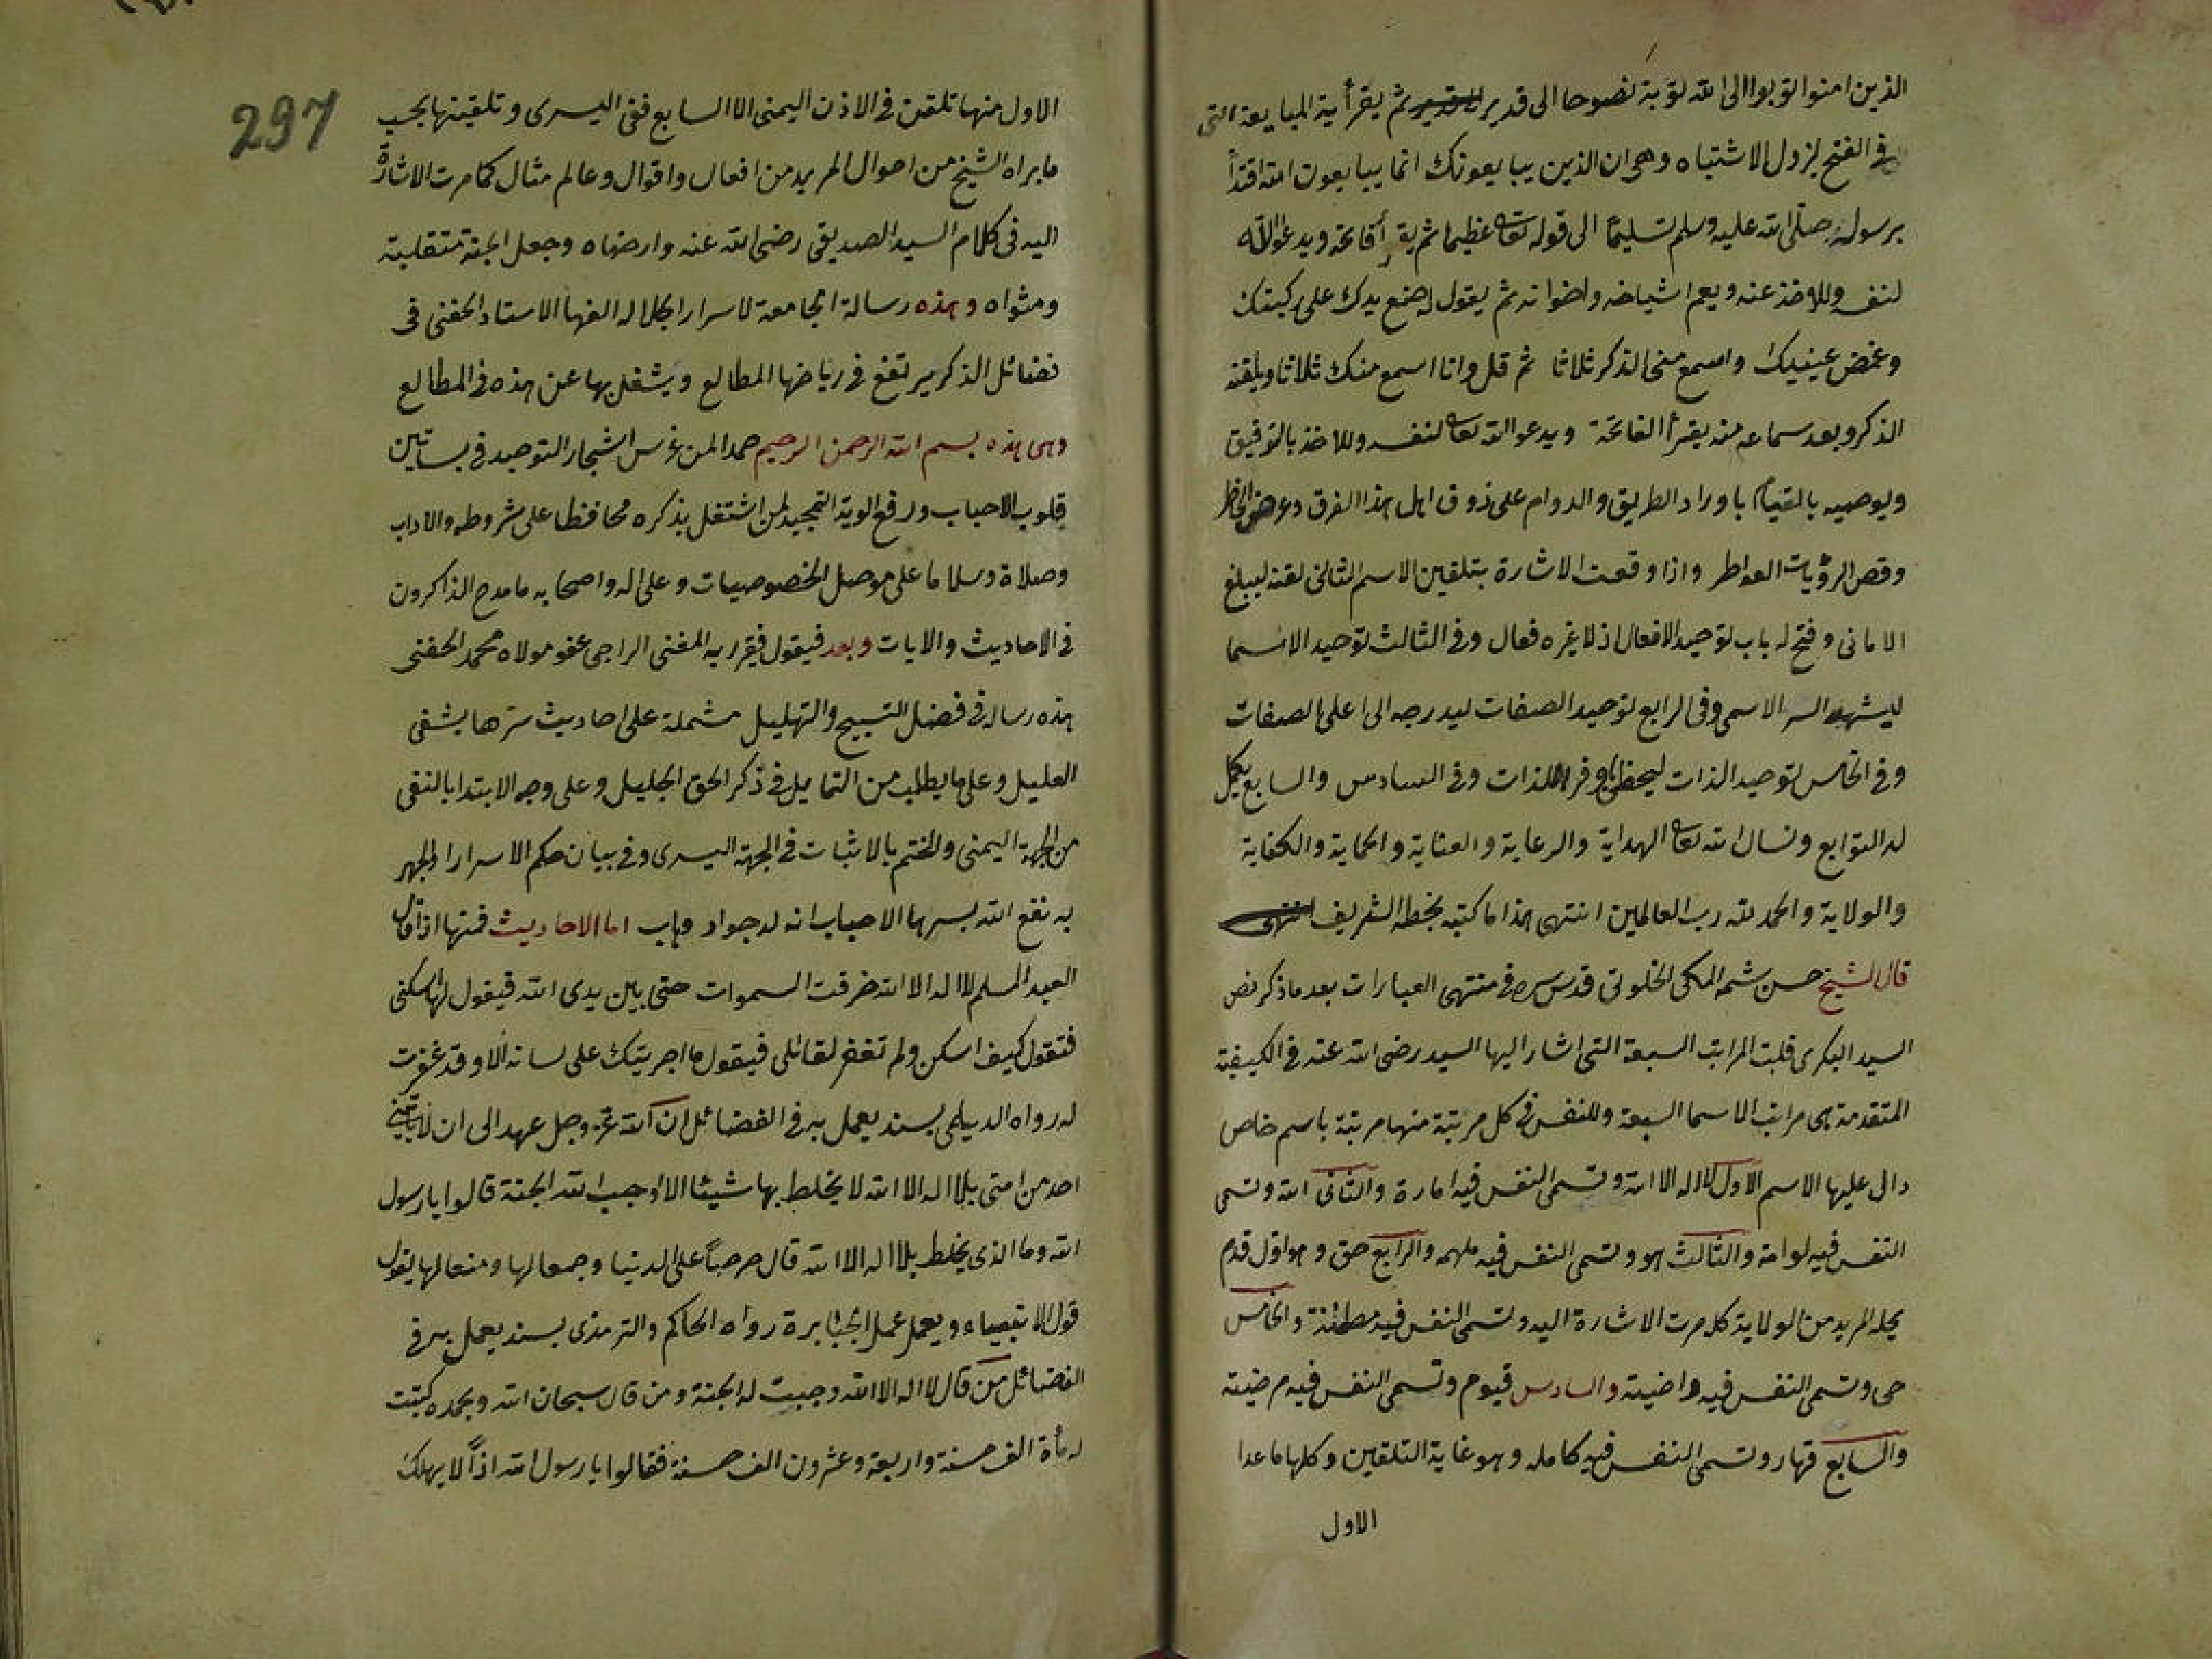 الذين امنوا توبوا الى الله توبة نصوحا الى قدير ثم يقرأ اية المبايعة التي
في الفتح ليزول الاشتباه وهي ان الذين يبايعونك انما يبايعون الله اقتدأ
برسوله صلى الله عليه وسلم تسليما الى قوله تعالى عظيما ثم يقرأ فاتحة ويدعو الله
لنفسه وللاخذ عنه ويعم اشياخه واخوانه ثم يقول له ضع يدك على ركبتك
وغمض عينيك واسمع مني الذكر ثلاثا ثم قل وانا اسمع منك ثلاثا ويلقنه
الذكر وبعد سماعه منه يقرأ الفاتحة ويدعو الله تعالى لنفسه وللاخذ بالتوفيق
ويوصيه بالقيام باوراد الطريق والدوام على ذوق اهل هذا الفرق وعرض الخاطر
وقص الرؤيات العواطر واذا وقعت الاشارة بتلقين الاسم الثاني لقنه ليبلغ
الاماني وفتح له باب توحيد الافعال اذ لا غيره فعال وفي الثالث توحيد الاسما
ليشهد السر الاسمى وفي الرابع توحيد الصفات ليدرجه الى اعلى الصفات
وفي الخامس توحيد الذات ليحظى باوفر اللذات وفي السادس والسابع يكمل
له التوابع ونسال الله تعالى الهداية والرعاية والعناية والحماية والكفاية
والولاية والحمد لله رب العالمين انتهى هذا ما كتبه بخطه الشريف
قال الشيخ حسن شمه المكي الخلوتي قدس سره في منتهى العبارات بعد ما ذكر نص
السيد البكري قلت المراتب السبعة التي اشار اليها السيد رضي الله عنه في الكيفية
المتقدمة هي مراتب الاسما السبعة وللنفس في كل مرتبة منها مرتبة باسم خاص
دال عليها الاسم الاول لا اله الا الله وتسمى النفس فيه امارة والثاني الله وتسمى
النفس فيه لوامة والثالث هو وتسمى النفس فيه ملهمه والرابع حق وهو اول قدم
يحله المريد من الولاية كما مرت الاشارة اليه وتسمى النفس فيه مطمئنة والخامس
حي وتسمى النفس فيه راضية والسادس قيوم وتسمى النفس فيه مرضية
والسابع قهار وتسمى النفس فيه كامله وهو غاية التلقين وكلها ما عدا
الاول
297
الاول منها تلقن في الاذن اليمنى الا السابع ففي اليسرى وتلقينها بحسب
ما يراه الشيخ من احوال المريد من افعال واقوال وعالم مثال كما مرت الاشارة
اليه في كلام السيد الصديقي رضي الله عنه وارضاه وجعل الجنة متقلبة
ومثواه وهذه رسالة الجامعة لاسرار الجلاله الفها الاستاد الحفني في
فضائل الذكر يرتع في رياضها المطالع ويشغل بها عن هذه في المطالع
وهي هذه بسم الله الرحمن الرحيم حمدا لمن غرس اشجار التوحيد في بساتين
قلوب الاحباب ورفع الوية التمجيد لمن اشتغل بذكره محافظا على شروطه والاداب
وصلاة وسلاما على موصل الخصوصيات وعلى اله واصحابه ما مدح الذاكرون
في الاحاديث والايات وبعد فيقول فقير ربه المغني الراجي عفو مولاه محمد الحفني
هذه رساله في فضل التسبيح والتهليل مشملة على احاديث سرها يشفي
العليل وعلى ما يطلب من التمايل في ذكر الحق الجليل وعلى وجه الابتدا بالنفي
من الجهة اليمنى والختم بالاثبات في الجهة اليسرى وفي بيان حكم الاسرار والجهر
به نفع الله بسرها الاحباب انه لجواد وهاب اما الاحاديث فمنها اذا قال
العبد المسلم لا اله الا الله خرقت السموات حتى بين يدي الله فيقول لها اسكني
فتقول كيف اسكن ولم تغفر لقائلي فيقول ما اجريتك على لسانه الا وقد غفرت
له رواه الديلمي بسند يعمل به في الفضائل ان الله عز وجل عهد الى ان لا ياتيني
احد من امتي بلا اله الا الله لا يخلط بها شيئا الا اوجب الله الجنة قالوا يا رسول
الله وما الذي يخلط بلا اله الا الله قال حرصاً على الدنيا وجمعا لها ومنعا لها يقول
قول الانبياء ويعمل عمل الجبابرة رواه الحاكم والترمذي بسند يعمل به في
الفضائل من قال لا اله الا الله وجبت له الجنة ومن قال سبحان الله وبحمده كتبت
له مأة الف حسنة واربعة وعشرون الف حسنة فقالوا يا رسول الله اذاً لا يهلك